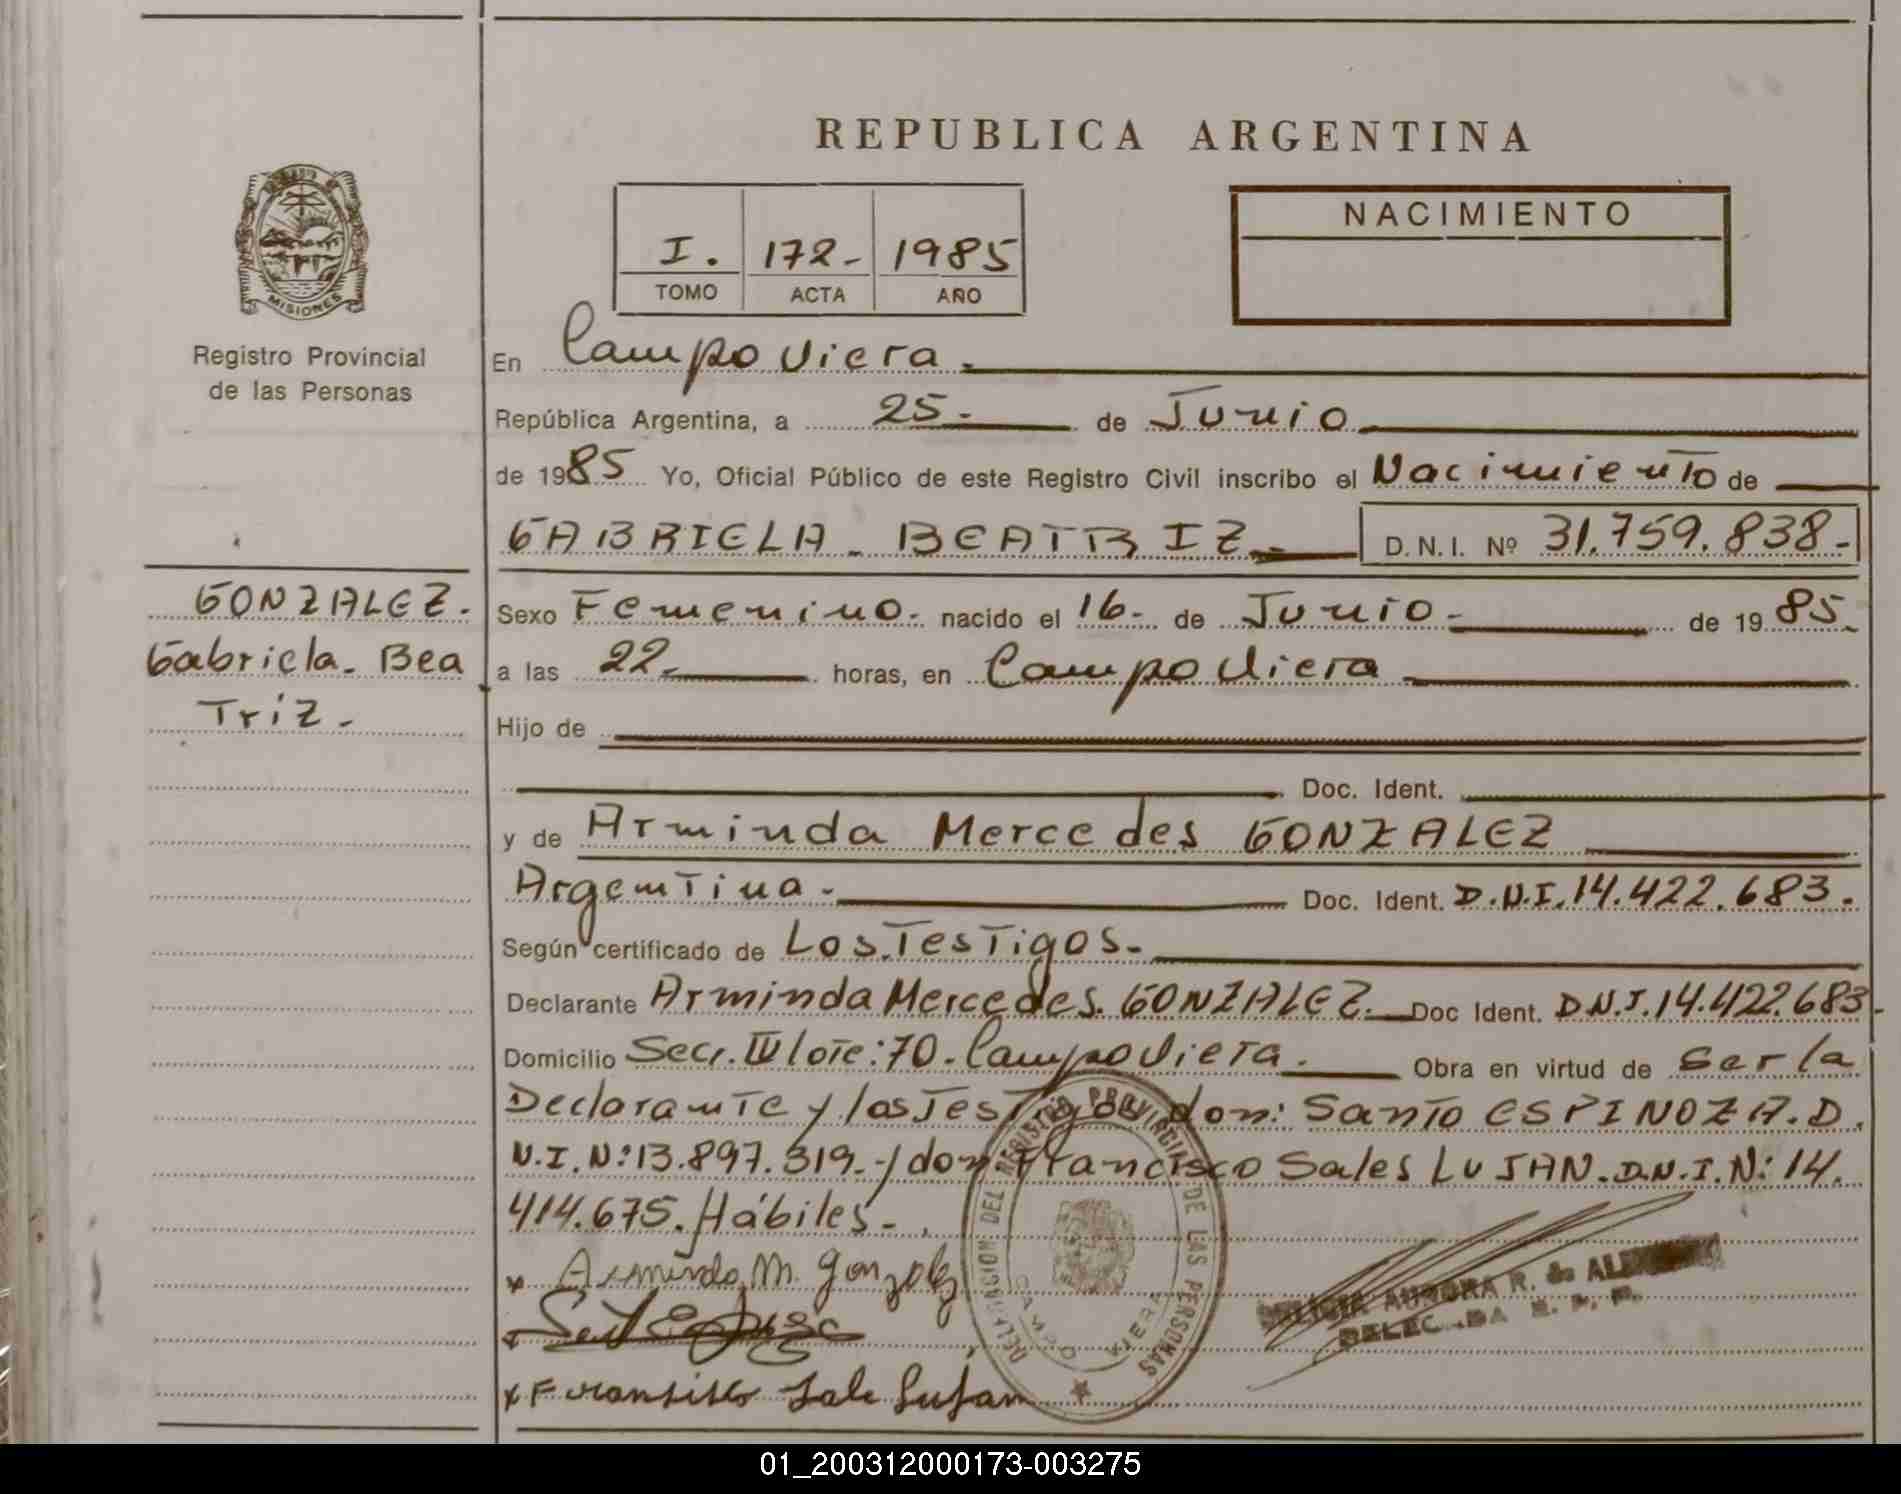 REPUBLICA ARGENTINA
MISIONES
Registro Provincial
de las Personas
I. 172- 1985
TOMO ACTA AÑO
NACIMIENTO
En Campo Viera.
República Argentina, a 25- de Junio
de 1985 Yo, Oficial Público de este Registro Civil inscribo el Nacimiento de
GABRIELA - BEATRIZ - D.N.I. Nº 31.759.838-
GONZALEZ.
Gabriela - Bea
Triz -
Sexo Femenino - nacido el 16- de Junio - de 1985.
a las 22- horas, en Campo Viera
Hijo de
Doc. Ident.
y de Arminda Mercedes GONZALEZ
Argentina - Doc. Ident. D.N.I. 14.422.683.
Según certificado de Los Testigos -
Declarante Arminda Mercedes GONZALEZ. Doc Ident. D.N.I. 14.422.683-
Domicilio Secc. IV lote: 70 - Campo Viera. Obra en virtud de ser la
Declarante y los Testigos don: Santo ESPINOZA. D.
N.I.N: 13.897.319.- y don Francisco Sales LUJAN. D.N.I.N: 14.
414.675. Hábiles -.
x Arminda M. Gonzalez
x Francisco Sale Lujan
DELEGACION DEL REGISTRO PROVINCIAL DE LAS PERSONAS
CAMPO VIERA
AURORA R. de
DELEGADA R. P. P.
01_200312000173-003275